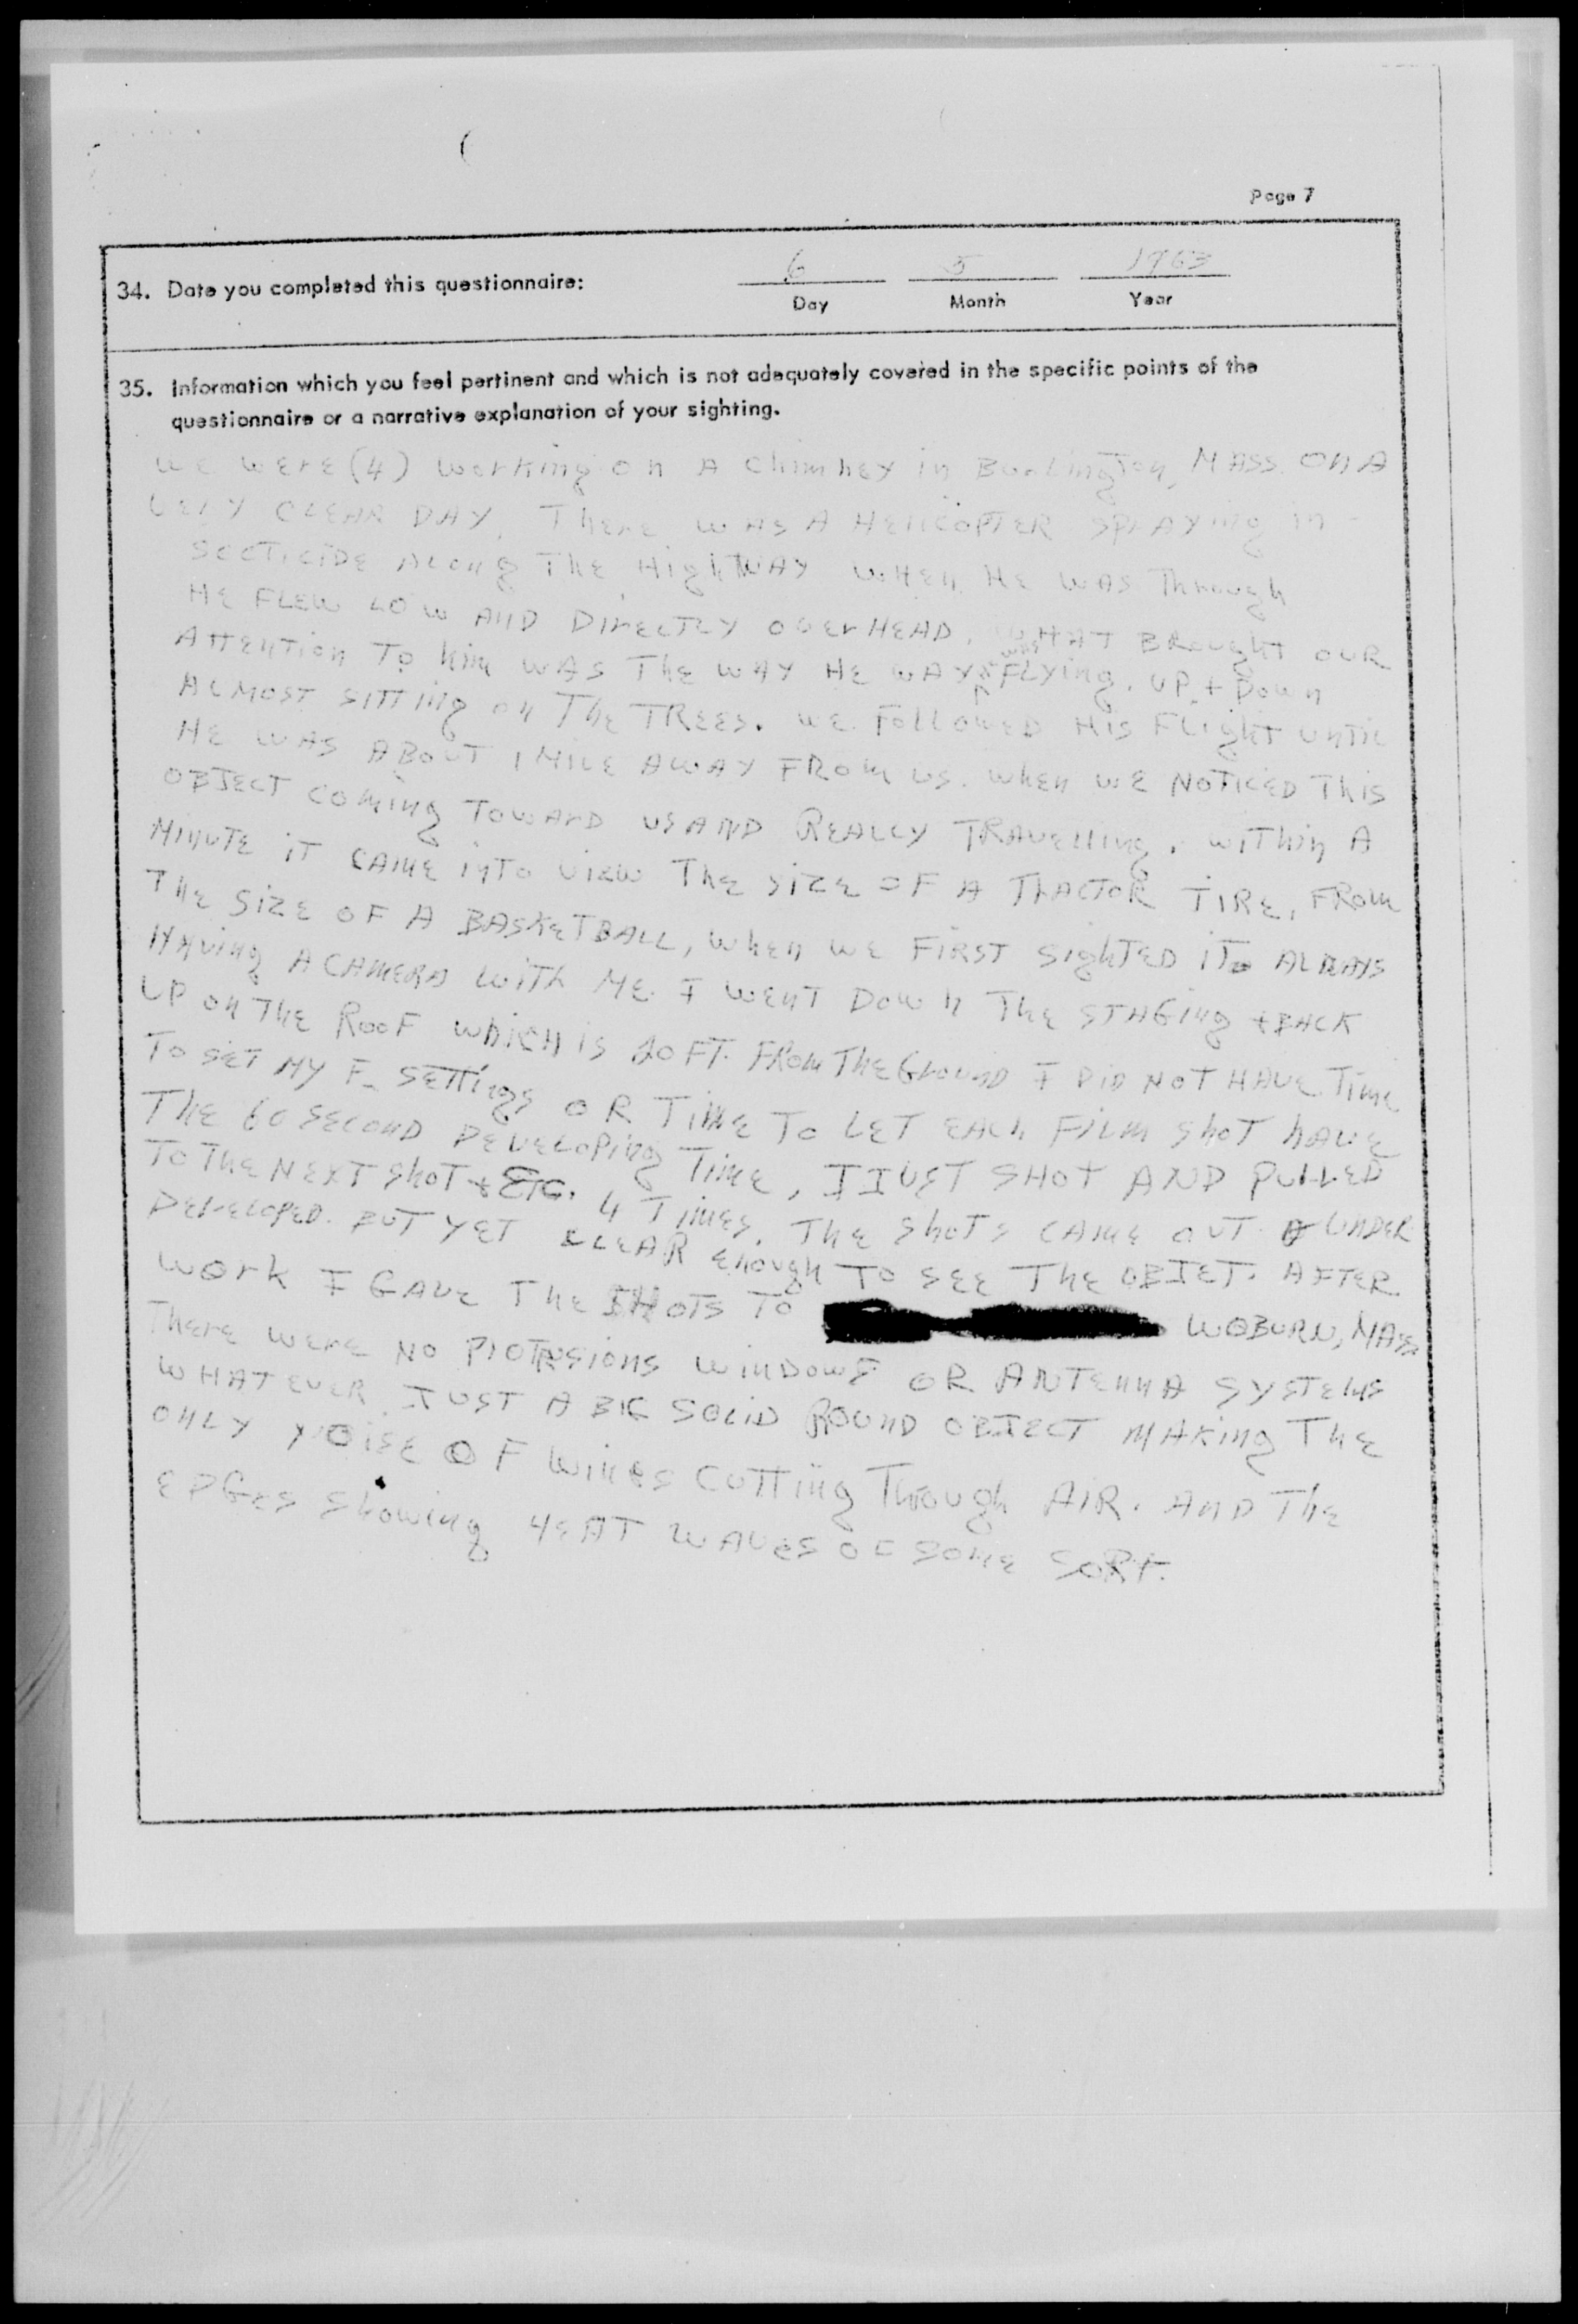 Page 7
34. Date you completed this questionnaire:
6 5 1963
Day Month Year
35. Information which you feel pertinent and which is not adequately covered in the specific points of the
questionnaire or a narrative explanation of your sighting.
WE WERE (4) WORKING ON A CHIMNEY IN BURLINGTON, MASS. ON A
VERY CLEAR DAY. THERE WAS A HELICOPTER SPRAYING IN-
SECTICIDE ALONG THE HIGHWAY WHEN HE WAS THROUGH
HE FLEW LOW AND DIRECTLY OVERHEAD. WHAT BROUGHT OUR
ATTENTION TO HIM WAS THE WAY HE WAY WAS FLYING. UP + DOWN
ALMOST SITTING ON THE TREES. WE FOLLOWED HIS FLIGHT UNTIL
HE WAS ABOUT 1 MILE AWAY FROM US. WHEN WE NOTICED THIS
OBJECT COMING TOWARD US AND REALLY TRAVELLING. WITHIN A
MINUTE IT CAME INTO VIEW THE SIZE OF A TRACTOR TIRE, FROM
THE SIZE OF A BASKETBALL, WHEN WE FIRST SIGHTED IT. ALWAYS
HAVING A CAMERA WITH ME. I WENT DOWN THE STAGING + BACK
UP ON THE ROOF WHICH IS 20 FT. FROM THE GROUND I DID NOT HAVE TIME
TO SET MY F. SETTINGS OR TIME TO LET EACH FILM SHOT HAVE
THE 60 SECOND DEVELOPING TIME, I JUST SHOT AND PULLED
TO THE NEXT SHOT + ETC. 4 TIMES. THE SHOTS CAME OUT UNDER
DEVELOPED. BUT YET CLEAR ENOUGH TO SEE THE OBJET. AFTER
WORK I GAVE THE SHOTS TO WOBURN, MASS
THERE WERE NO PROTRUSIONS WINDOWS OR ANTENNA SYSTEMS
WHAT EVER. JUST A BIG SOLID ROUND OBJECT MAKING THE
ONLY NOISE OF WINGS CUTTING THROUGH AIR. AND THE
EDGES SHOWING HEAT WAVES OF SOME SORT.